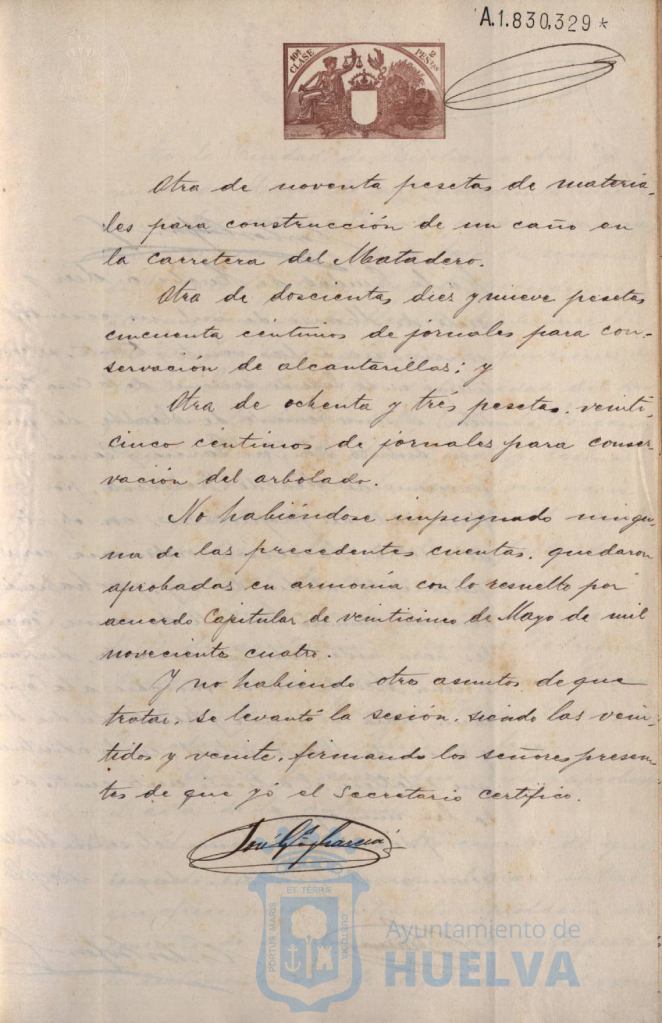 A.1.830,329*
10ª CLASE
2 PESETAS
Otra de noventa pesetas de materia-
les para construcción de un caño en
la carretera del Matadero.
Otra de doscientas diez y nueve pesetas
cincuenta céntimos de jornales para con-
servación de alcantarillas; y
Otra de ochenta y trés pesetas veinti-
cinco céntimos de jornales para conser-
vación del arbolado.
No habiéndose impugnado ningu-
na de las precedentes cuentas, quedaron
aprobadas en armonía con lo resuelto por
acuerdo Capitular de veinticinco de Mayo de mil
novecientos cuatro.
Y no habiendo otros asuntos de que
tratar, se levantó la sesión, siendo las vein-
tidos y veinte, firmando los señores presen-
tes de que yó el Secretario certifico.
PORTUS MARIS
ET TERRÆ
CUSTODIA
Ayuntamiento de
HUELVA